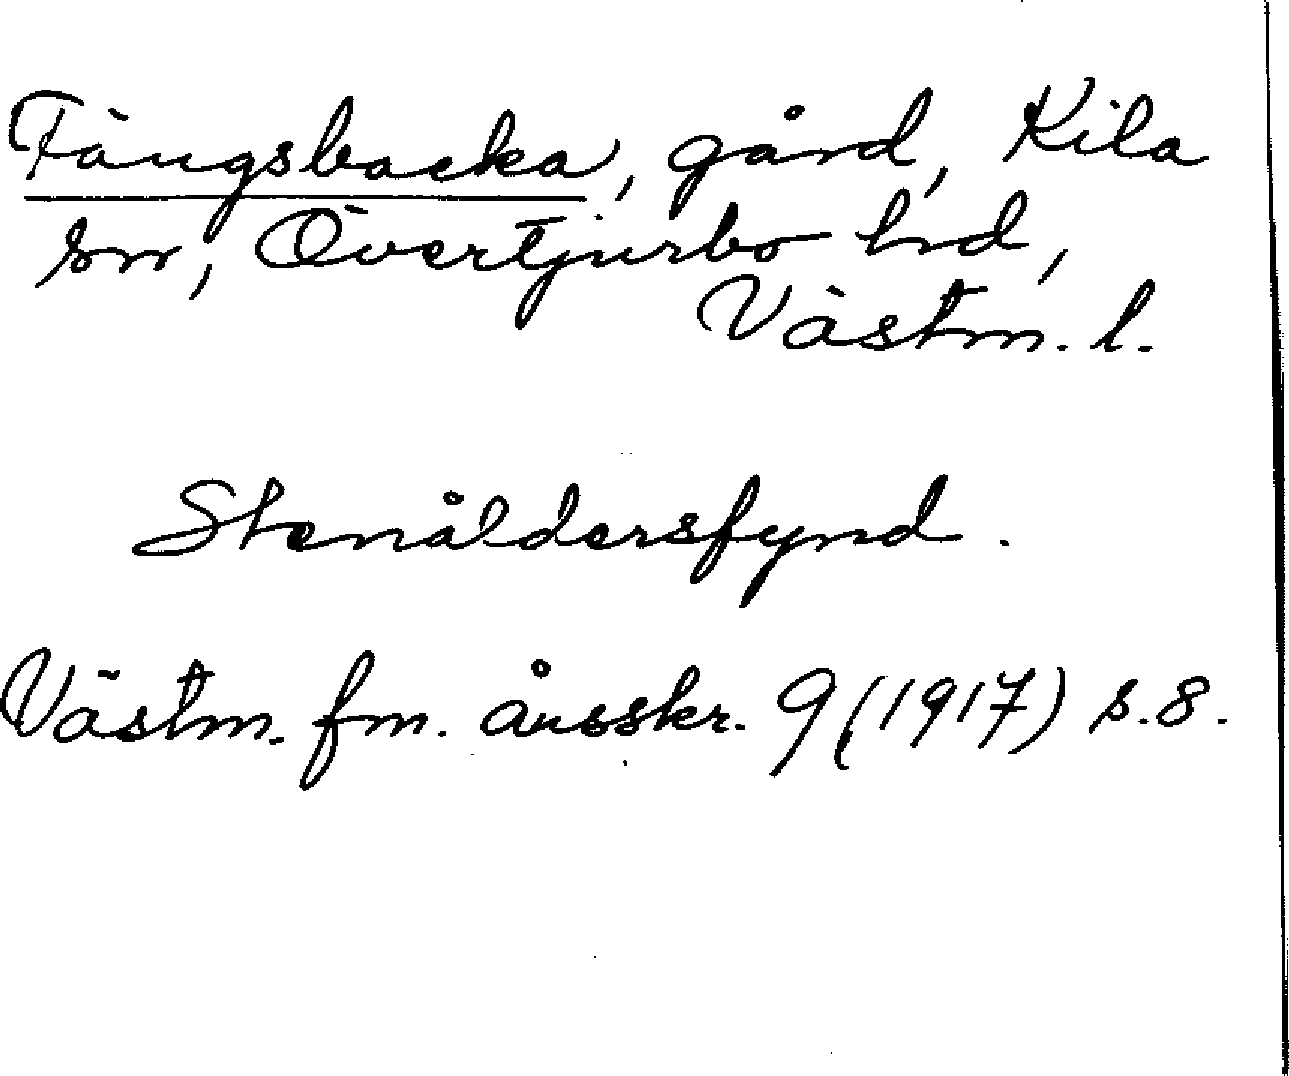 Tängsbacka, gård, Kila
sn, Övertjurbo hd,
Västm. l.
Stenåldersfynd.
Västm. fm. årsskr. 9 (1917) s. 8.